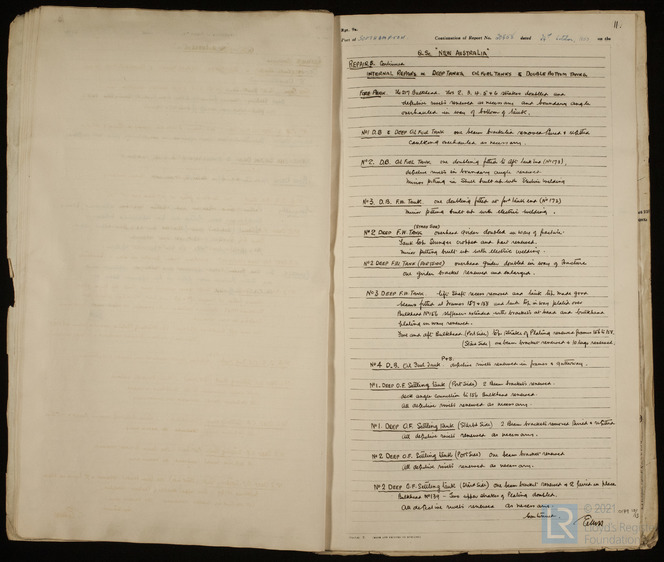 Rpt. 9a.
11.
Port of SOUTHAMPTON Continuation of Report No. dated on the
"NEW AUSTRALIA"
REPAIRS. Continued
INTERNAL REPAIRS IN DEEP TANKS OIL FUEL TANKS & DOUBLE BOTTOM TANKS
FORE PEAK. No 217 Bulkhead. Nos 2. 3. 4. 5 & 6 strakes doubled and
defective rivets renewed as necessary and boundary angle
overhauled in way of bottom of tank.
No 1 D.B & DEEP OIL FUEL TANK one beam bracket removed faired & refitted
Caulking overhauled as necessary.
No 2. D.B. OIL FUEL TANK one doubling fitted to aft tank end (No 178).
defective rivets in boundary angle renewed
minor pitting in built up with Electric Welding
No 3. D.B. F.W. TANK. one doubling fitted at for'd tank end (No 178)
minor pitting built up with electric welding.
(STARB SIDE)
No 2 DEEP F.W. TANK overhead girder doubled in way of fracture
Tank top cropped and part renewed.
minor pitting built up with electric welding.
No 2 DEEP F.W TANK (PORT SIDE) overhead girder doubled in way of fracture
one girder bracket renewed and enlarged.
No 3 DEEP F.W. TANK. lift shaft recess removed and tank top made good
beams fitted at frames 187 & 188 and tank top in way plated over
Bulkhead No 186 stiffener extended with brackets at head and bulkhead
plating in way renewed.
Fore and aft Bulkhead (Port Side) top strake of Plating renewed frames
(Starb Side) one beam bracket renewed & 10 lugs renewed.
P & S.
No 4 D.B. Oil Fuel Tank. defective rivets renewed in frames &
No 1. DEEP O.F. Settling Tank (Port Side) 2 Beam brackets renewed.
deck angle connection to 156 Bulkhead renewed.
All defective rivets renewed as necessary.
No 1. DEEP O.F. Settling Tank (Starb'd Side) 2 Beam brackets removed faired & refitted
All defective rivets renewed as necessary.
No 2 DEEP O.F. Settling Tank (Port Side) one beam bracket renewed
All defective rivets renewed as necessary.
No 2 DEEP O.F. Settling Tank (Starb'd Side) one beam bracket renewed & 2 faired in place
Bulkhead No 139 - Two upper strakes of Plating doubled.
All defective rivets renewed as necessary.
Continued
© 2021
LR
Lloyd's Register
Foundation